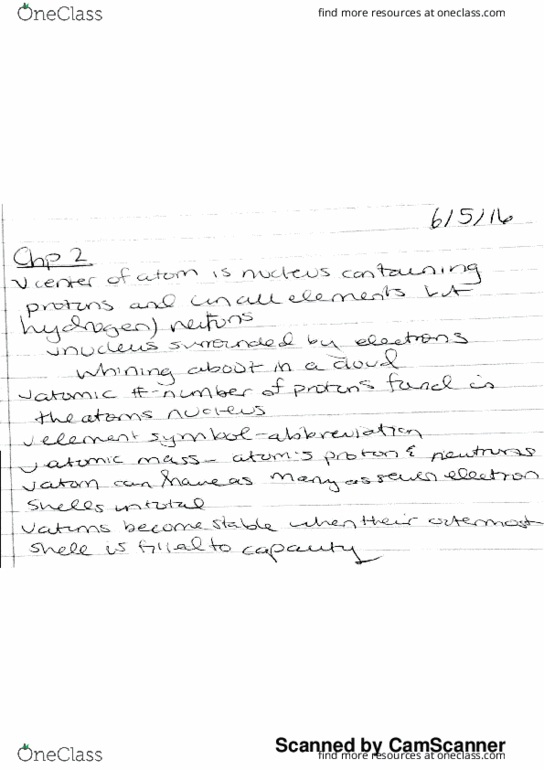 OneClass
find more resources at oneclass.com
6/5/16
Chp 2
center of atom is nucleus containing
protons and (in all elements but
hydrogen) neutrons
nucleus surrounded by electrons
whining about in a cloud
atomic #-number of protons found in
the atoms nucleus
element symbol-abbreviation
atomic mass- atom's proton & neutrons
atom can have as many as seven electron
shells in total
atoms become stable when their outermost
shell is filled to capacity
Scanned by CamScanner
OneClass
find more resources at oneclass.com